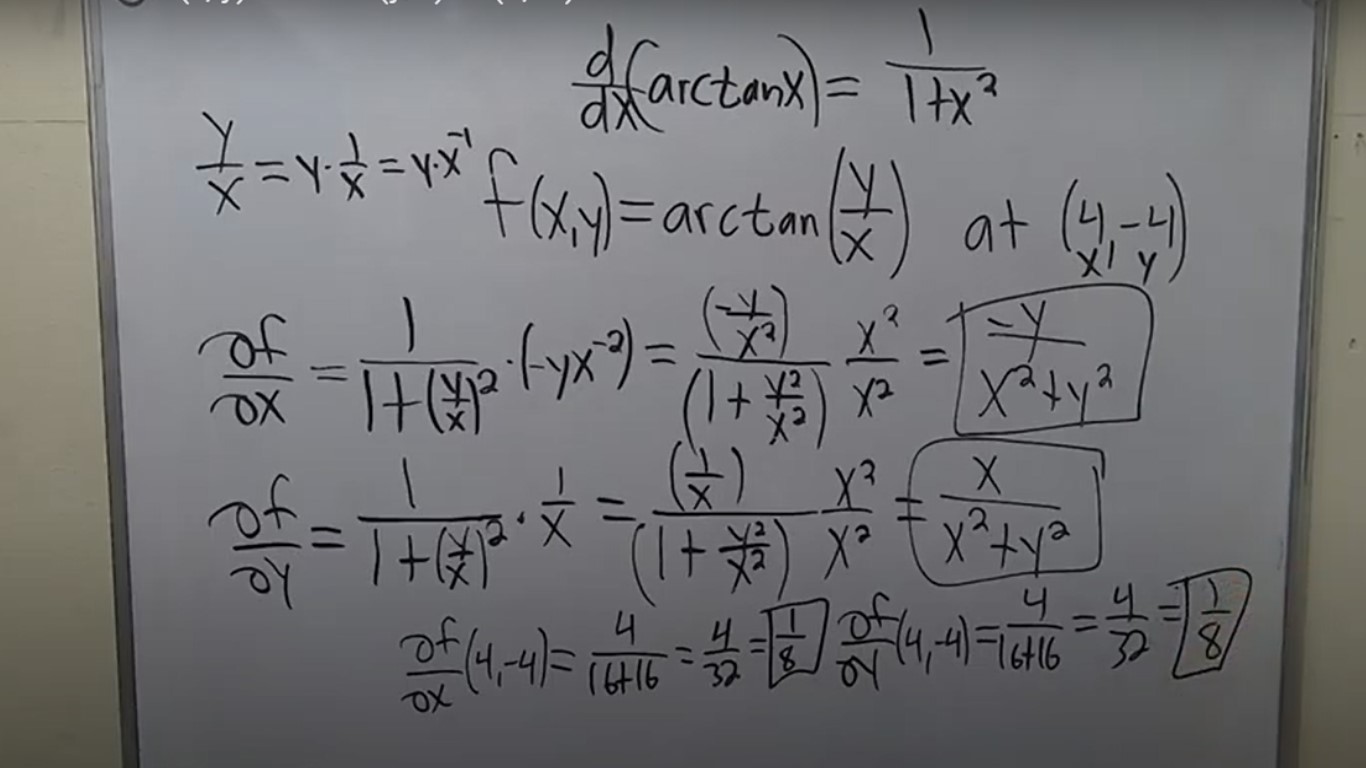 d/dx(arctanx) = 1/(1+x²)
y/x = y·1/x = y·x⁻¹
f(x,y) = arctan(y/x) at (4,-4)
x, y
∂f/∂x = 1/(1+(y/x)²)·(-yx⁻²) = (-y/x²)/(1+y²/x²) x²/x² = -y/(x²+y²)
∂f/∂y = 1/(1+(y/x)²)·1/x = (1/x)/(1+y²/x²) x²/x² = x/(x²+y²)
∂f/∂x(4,-4) = 4/(16+16) = 4/32 = 1/8 ∂f/∂y(4,-4) = 4/(16+16) = 4/32 = 1/8